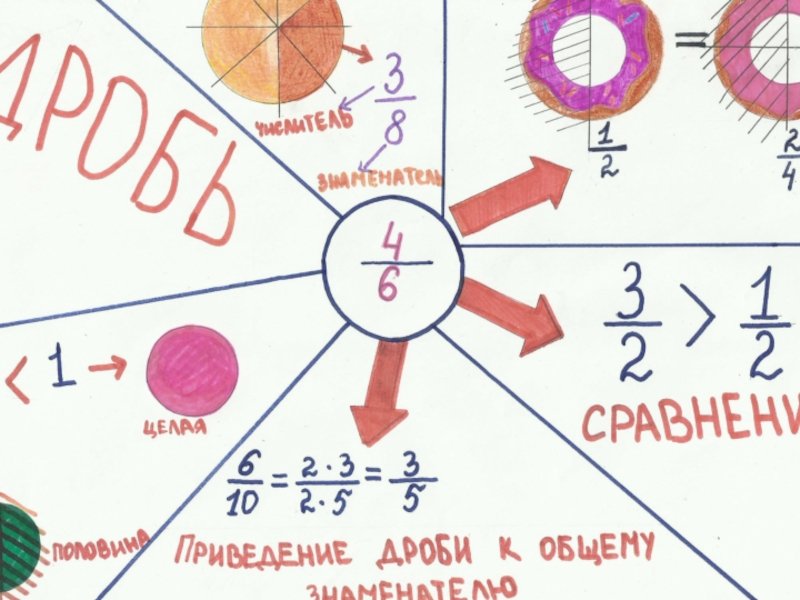 ДРОБЬ
3/8
ЧИСЛИТЕЛЬ
ЗНАМЕНАТЕЛЬ
1/2 = 2/4
4/6
3/2 > 1/2
СРАВНЕНИ
< 1
ЦЕЛАЯ
ПОЛОВИНА
6/10 = 2·3/2·5 = 3/5
ПРИВЕДЕНИЕ ДРОБИ К ОБЩЕМУ
ЗНАМЕНАТЕЛЮ